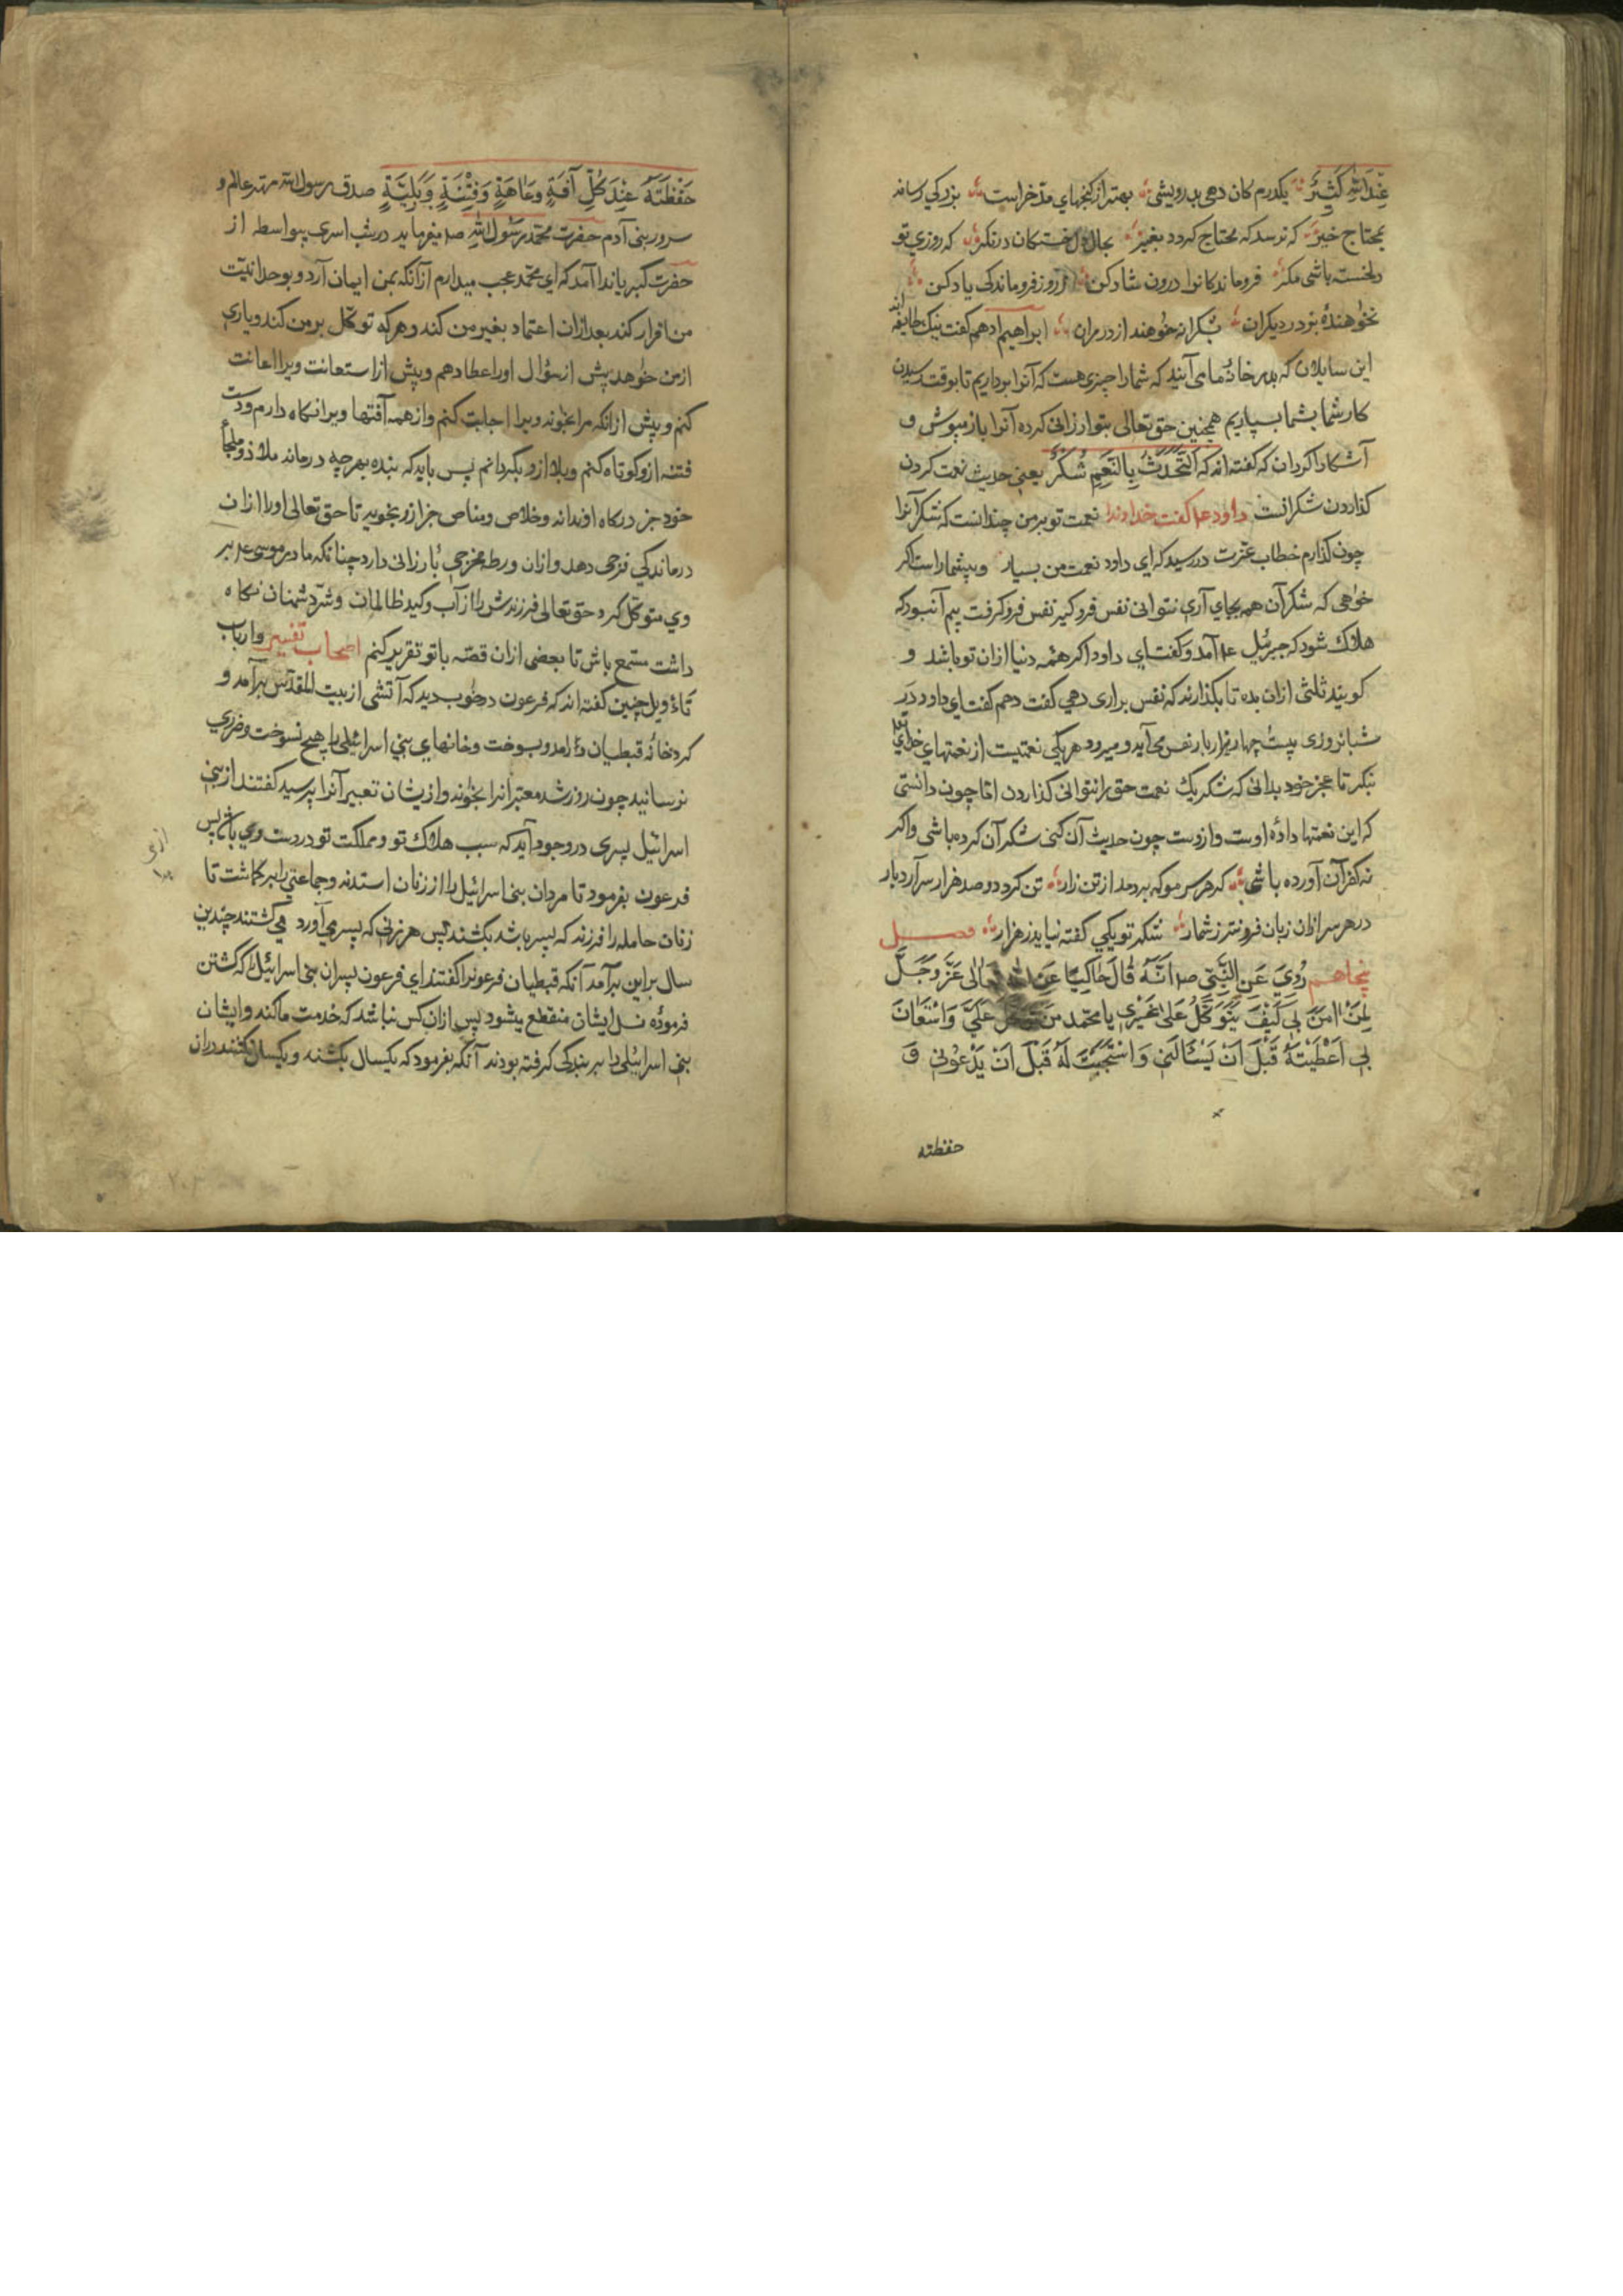 عِنْدَ اللّٰهِ كَثِيرٌ یکدرم کان دهی بدرویشی بهتر از کنجهای مدخراست بزرکی رساند
بمحتاج خیر که ترسد که محتاج کردد بغیر بحال دل خستکان در نکر که روزی تو
دلخسته باشی مکر فروماندکانرا درون شاد کن ز روز فروماندکی یاد کن
نخواهندهٔ بر در دیکران بشکرانه خواهنده از در مران ابراهیم ادهم کفت نیک طایفه اند
این سایلان که بدر خانهٔ ما می آیند که شمارا چیزی هست که آنرا برداریم تا بوقت رسیدن
کار شما بشما بسپاریم همچنین حق تعالی بتو ارزانی کرده آنرا باز مپوش و
آشکارا کردان که کفته اند که اَلتَّحَدُّثُ بِالنِّعَمِ شُكْرٌ یعنی حدیث نعمت کردن
کذاردن شکر انست داود عم کفت خداوندا نعمت تو بر من چندانست که شکر آنرا
چون کذارم خطاب عزت در رسید که ای داود نعمت من بسیار وبیشمار است اکر
خواهی که شکر آن همه بجای آری نتوانی نفس فروکیر نفس فروکرفت بیم آنبود که
هلاک شود که جبرئیل عم آمد وکفت ای داود اکر همه دنیا ازان تو باشد و
کویند ثلثی ازان بده تا بکذارند که نفس براری دهی کفت دهم کفت ای داود در
شبانروزی بیست چهار هزار بار نفس می آید و میرود هر یکی نعمتیست از نعمتهای خدای تع
بنکر تا عجز خود بدانی که شکر یک نعمت حق را نتوانی کذاردن اما چون دانستی
که این نعمتها دادهٔ اوست وازوست چون حدیث آن کنی شکر آن کرده باشی واکر
نه کفر آن آورده باشی که هر سر مو که بر دمد از تن زار تن کردد و صد هزار سر آرد بار
در هر سر ازان زبان فزونتر ز شمار شکر تو یکی کفته نیاید ز هزار فصل
پنجاهم رُوِيَ عَنِ النَّبِيِّ صم اَنَّهُ قَالَ حَاكِيًا عَنِ اللّٰهِ تَعَالٰی عَزَّ وَجَلَّ
لِمَنْ اٰمَنَ بِی كَيْفَ يَتَوَكَّلُ عَلٰی غَيْرِی يا محمد من تَوَكَّلَ عَلَيَّ وَاسْتَعَانَ
بِی اَعْطَيْتُهُ قَبْلَ اَنْ يَسْئَالَنِی وَاسْتَجَبْتُ لَهُ قَبْلَ اَنْ يَدْعُونِی وَ
حفظته
حَفِظْتَهُ عِنْدَ كُلِّ آفَةٍ وعَاهَةٍ وَفِتْنَةٍ وَبَلِيَّةٍ صدق رسول الله مهتر عالم و
سرور بنی آدم حضرت محمد رسول الله صم میفرماید در شب اسری بیواسطه از
حضرت کبریا ندا آمد که ای محمد عجب میدارم ازآنکه بمن ایمان آرد و بوحدانیت
من اقرار کند بعد ازان اعتماد بغیر من کند و هر که توکل بر من کند ویاری
از من خواهد پیش از سؤال اورا عطا دهم وپیش از استعانت ویرا اعانت
کنم وپیش ازانکه مرا بخواند ویرا اجابت کنم واز همه آفتها ویرا نکاه دارم ودست
فتنه ازو کوتاه کنم وبلا ازو بکردانم پس باید که بنده بهرچه درماند ملاذ وملجأ
خود جز درکاه او نداند وخلاص ومناص جز ازو نجوید تا حق تعالی اورا ازان
درماندکی فرجی دهد وازان ورطه مخرجی بارزانی دارد چنانکه مادر موسی عم بر
وی متوکل کرد حق تعالی فرزندش را از آب وکید ظالمان وشر دشمنان نکاه
داشت مستمع باش تا بعضی ازان قصه با تو تقریر کنم اصحاب تفسیر وارباب
تأویل چنین کفته اند که فرعون در خواب دید که آتشی از بیت المقدس برآمد و
کرد خانهٔ قبطیان درامد وبسوخت وخانهای بنی اسرائیلی را هیچ نسوخت وضرری
نرسانید چون روز شد معبرانرا بخواند وازیشان تعبیر آنرا پرسید کفتند از بنی
اسرائیل پسری در وجود آید که سبب هلاک تو ومملکت تو در دست وی باشد پس
فرعون بفرمود تا مردان بنی اسرائیل را از زنان استدند وجماعتی را برکماشت تا
زنان حامله را فرزند که پسر باشد بکشند پس هر زنی که پسر می آورد می کشتند چندین
سال براین برآمد آنکه قبطیان فرعونرا کفتند ای فرعون پسران بنی اسرائیل را که کشتن
فرمودهٔ نسل ایشان منقطع بشود پس ازان کس نباشد که خدمت ما کند وایشان
بنی اسرائیلی را ببر بندکی کرفته بودند آنکه بفرمود که یکسال بکشند ویکسال نکشند دران